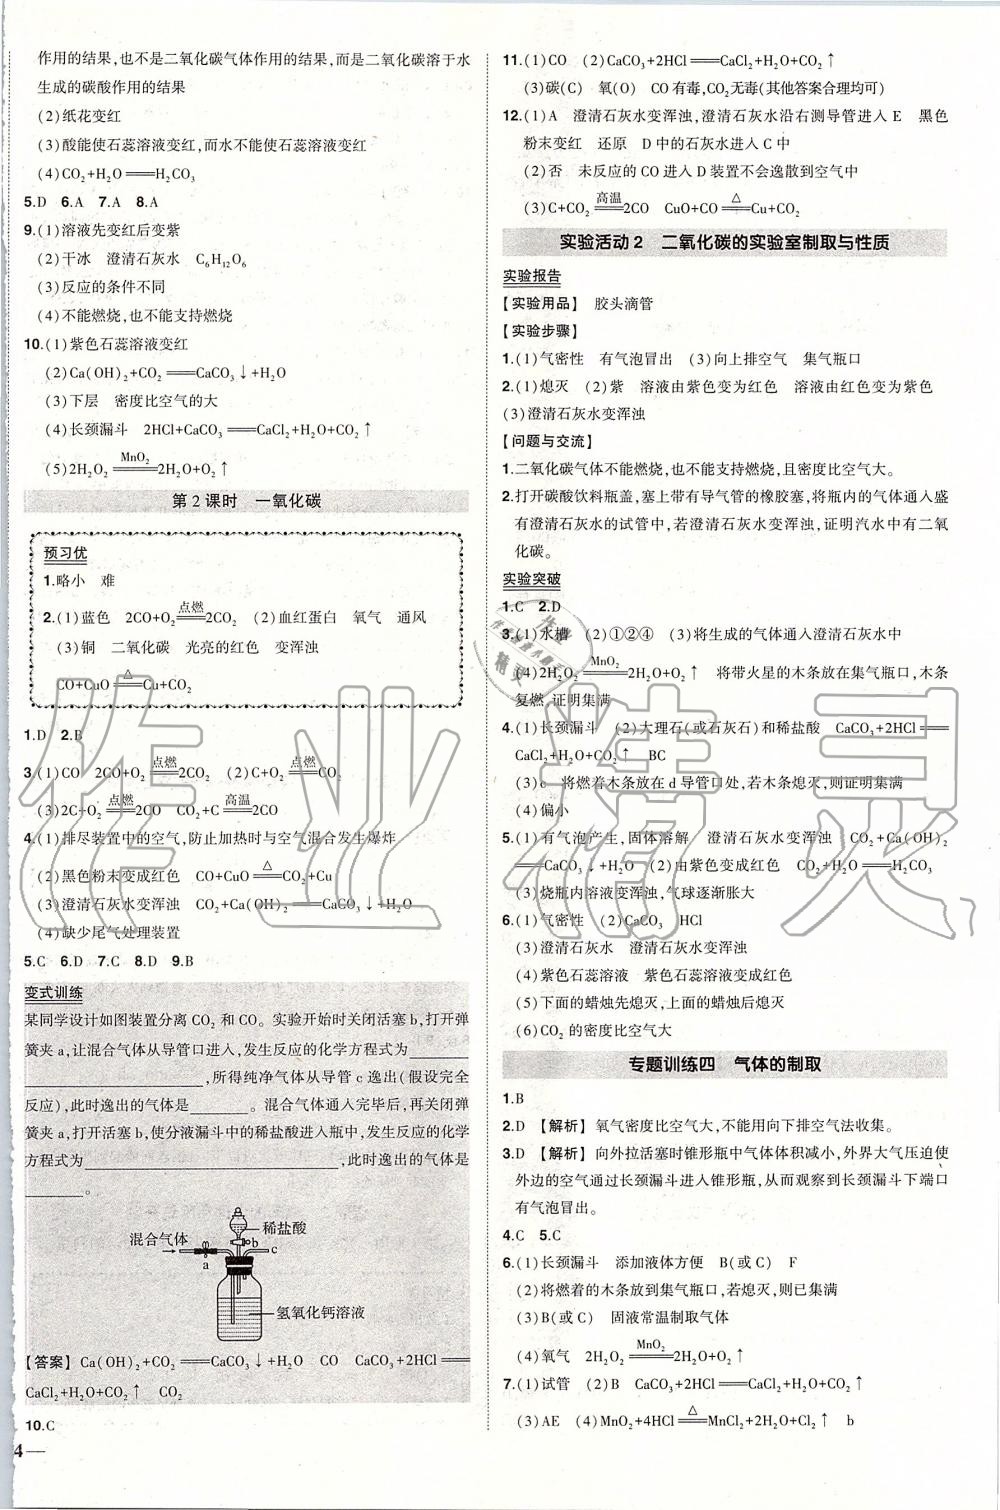 作用的结果,也不是二氧化碳气体作用的结果,而是二氧化碳溶于水
生成的碳酸作用的结果
(2)纸花变红
(3)酸能使石蕊溶液变红,而水不能使石蕊溶液变红
(4)CO₂+H₂O══H₂CO₃
5.D 6.A 7.A 8.A
9.(1)溶液先变红后变紫
(2)干冰 澄清石灰水 C₆H₁₂O₆
(3)反应的条件不同
(4)不能燃烧,也不能支持燃烧
10.(1)紫色石蕊溶液变红
(2)Ca(OH)₂+CO₂══CaCO₃↓+H₂O
(3)下层 密度比空气的大
(4)长颈漏斗 2HCl+CaCO₃══CaCl₂+H₂O+CO₂↑
(5)2H₂O₂ MnO₂══ 2H₂O+O₂↑
第2课时 一氧化碳
预习优
1.略小 难
2.(1)蓝色 2CO+O₂ 点燃══ 2CO₂ (2)血红蛋白 氧气 通风
(3)铜 二氧化碳 光亮的红色 变浑浊
CO+CuO △══ Cu+CO₂
1.D 2.B
3.(1)CO 2CO+O₂ 点燃══ 2CO₂ (2)C+O₂ 点燃══ CO₂
(3)2C+O₂ 点燃══ 2CO CO₂+C 高温══ 2CO
4.(1)排尽装置中的空气,防止加热时与空气混合发生爆炸
(2)黑色粉末变成红色 CO+CuO △══ CO₂+Cu
(3)澄清石灰水变浑浊 CO₂+Ca(OH)₂══CaCO₃↓+H₂O
(4)缺少尾气处理装置
5.C 6.D 7.C 8.D 9.B
变式训练
某同学设计如图装置分离CO₂和CO。实验开始时关闭活塞b,打开弹
簧夹a,让混合气体从导管口进入,发生反应的化学方程式为________
________________,所得纯净气体从导管c逸出(假设完全
反应),此时逸出的气体是________。混合气体通入完毕后,再关闭弹
簧夹a,打开活塞b,使分液漏斗中的稀盐酸进入瓶中,发生反应的化学
方程式为________________________,此时逸出的气体是
________。
稀盐酸
混合气体
b
c
a
氢氧化钙溶液
【答案】Ca(OH)₂+CO₂══CaCO₃↓+H₂O CO CaCO₃+2HCl══
CaCl₂+H₂O+CO₂↑ CO₂
10.C
4—
11.(1)CO (2)CaCO₃+2HCl══CaCl₂+H₂O+CO₂↑
(3)碳(C) 氧(O) CO有毒,CO₂无毒(其他答案合理均可)
12.(1)A 澄清石灰水变浑浊,澄清石灰水沿右测导管进入E 黑色
粉末变红 还原 D中的石灰水进入C中
(2)否 未反应的CO进入D装置不会逸散到空气中
(3)C+CO₂ 高温══ 2CO CuO+CO △══ Cu+CO₂
实验活动2 二氧化碳的实验室制取与性质
实验报告
【实验用品】 胶头滴管
【实验步骤】
1.(1)气密性 有气泡冒出 (3)向上排空气 集气瓶口
2.(1)熄灭 (2)紫 溶液由紫色变为红色 溶液由红色变为紫色
(3)澄清石灰水变浑浊
【问题与交流】
1.二氧化碳气体不能燃烧,也不能支持燃烧,且密度比空气大。
2.打开碳酸饮料瓶盖,塞上带有导气管的橡胶塞,将瓶内的气体通入盛
有澄清石灰水的试管中,若澄清石灰水变浑浊,证明汽水中有二氧
化碳。
实验突破
1.C 2.D
3.(1)水槽 (2)①②④ (3)将生成的气体通入澄清石灰水中
(4)2H₂O₂ MnO₂══ 2H₂O+O₂↑ 将带火星的木条放在集气瓶口,木条
复燃,证明集满
4.(1)长颈漏斗 (2)大理石(或石灰石)和稀盐酸 CaCO₃+2HCl══
CaCl₂+H₂O+CO₂↑ BC
(3)c 将燃着木条放在d导管口处,若木条熄灭,则证明集满
(4)偏小
5.(1)有气泡产生,固体溶解 澄清石灰水变浑浊 CO₂+Ca(OH)₂
══CaCO₃↓+H₂O (2)由紫色变成红色 CO₂+H₂O══H₂CO₃
(3)烧瓶内溶液变浑浊,气球逐渐胀大
6.(1)气密性 (2)CaCO₃ HCl
(3)澄清石灰水 澄清石灰水变浑浊
(4)紫色石蕊溶液 紫色石蕊溶液变成红色
(5)下面的蜡烛先熄灭,上面的蜡烛后熄灭
(6)CO₂的密度比空气大
专题训练四 气体的制取
1.B
2.D 【解析】 氧气密度比空气大,不能用向下排空气法收集。
3.D 【解析】 向外拉活塞时锥形瓶中气体体积减小,外界大气压迫使
外边的空气通过长颈漏斗进入锥形瓶,从而观察到长颈漏斗下端口
有气泡冒出。
4.C 5.C
6.(1)长颈漏斗 添加液体方便 B(或C) F
(2)将燃着的木条放到集气瓶口,若熄灭,则已集满
(3)B(或C) 固液常温制取气体
(4)氧气 2H₂O₂ MnO₂══ 2H₂O+O₂↑
7.(1)试管 (2)B CaCO₃+2HCl══CaCl₂+H₂O+CO₂↑
(3)AE (4)MnO₂+4HCl △══ MnCl₂+2H₂O+Cl₂↑ b
作业精灵